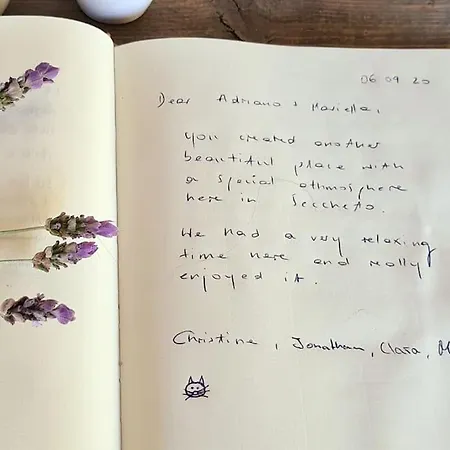 06 09 20
Dear Adriano + Mariella,
You created another
beautiful place with
a special athmosphere
here in Seccheto.
We had a very relaxing
time here and really
enjoyed it.
Christine, Jonathan, Clara, M